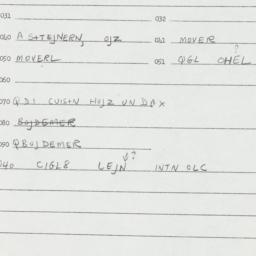 031 032
040 A S+TEJNERN, OJZ 041 MOVER
?
050 MOVERL 051 QGL OHEL
060
070 QDI CUIS+N HUJZ UN DAX
080 BOJDEMER
090 QBOJDEMER
↓?
040 CIGL8 LEJN INTN OLC